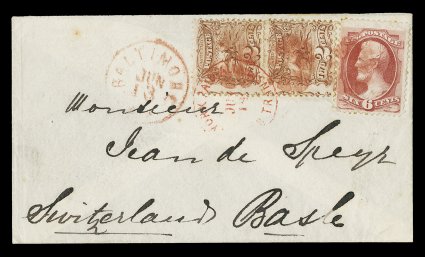 BALTIMORE
JUN
POSTAGE
SIX 6 CENTS
Monsieur
Jean de Speyr
Switzerland Basle